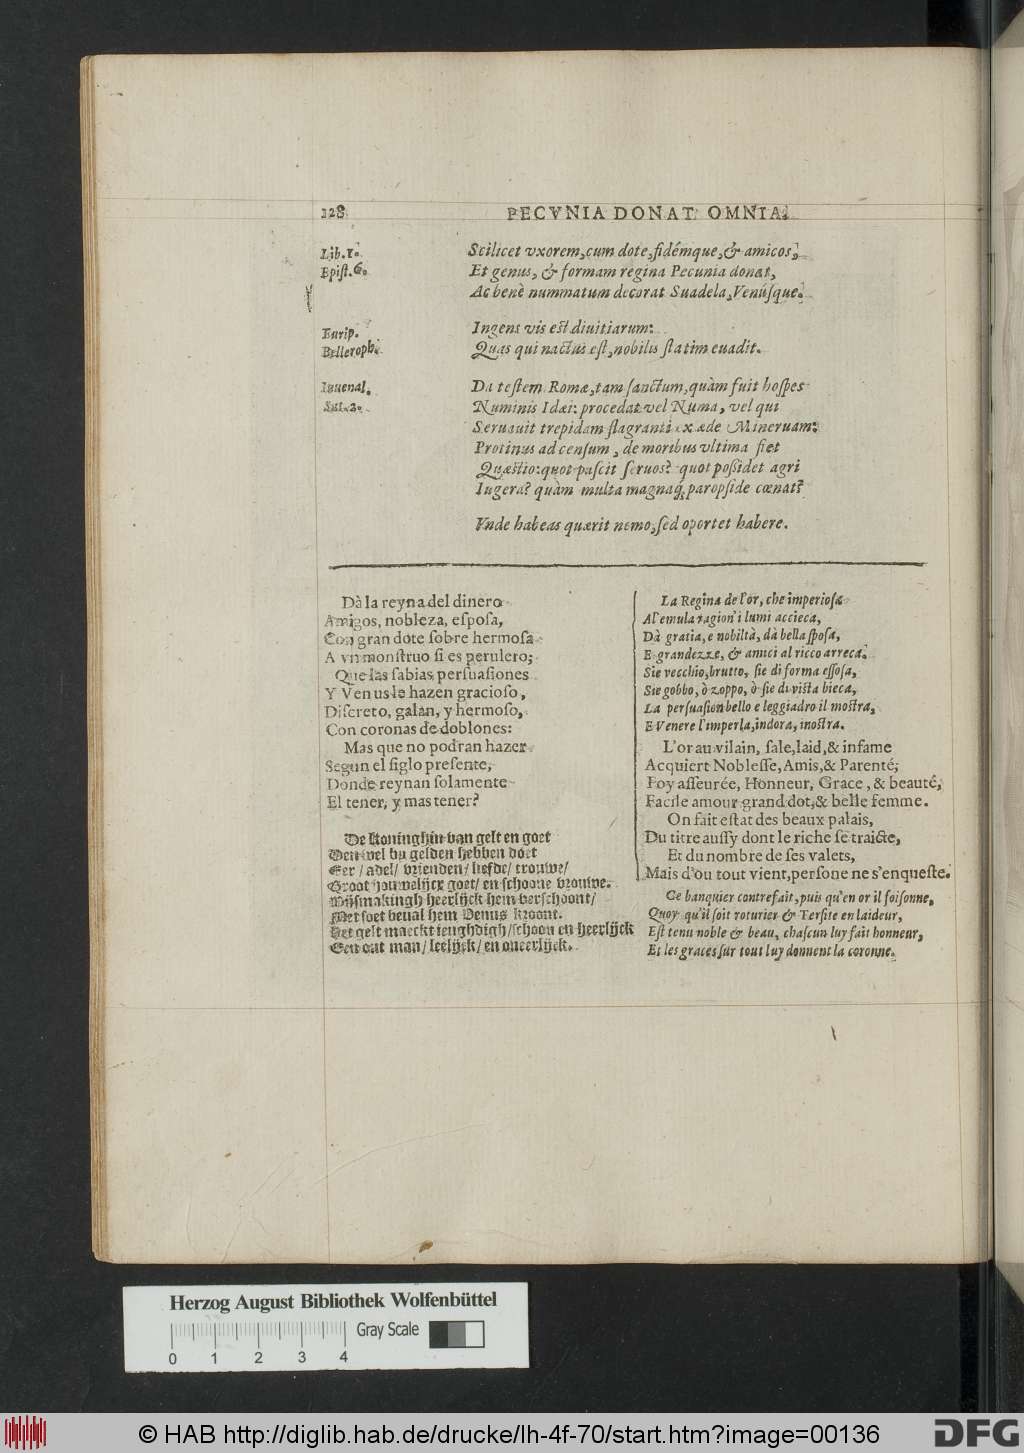 128 PECVNIA DONAT OMNIA.
Lib. 1.
Epist. 6.
Scilicet vxorem, cum dote, fidémque, & amicos,
Et genus, & formam regina Pecunia donat,
Ac benè nummatum decorat Suadela, Venúsque.
Eurip.
Belleroph.
Ingens vis est diuitiarum:
Quas qui nactus est, nobilis statim euadit.
Iuuenal.
Sat. 3.
Da testem Romæ, tam sanctum, quàm fuit hospes
Numinis Idæi: procedat vel Numa, vel qui
Seruauit trepidam flagranti ex æde Mineruam:
Protinus ad censum, de moribus vltima fiet
Quæstio: quot pascit seruos? quot possidet agri
Iugera? quàm multa magnaq; paropside cœnat?
Vnde habeas quærit nemo, sed oportet habere.
Dà la reyna del dinero
Amigos, nobleza, esposa,
Con gran dote sobre hermosa
A vn monstruo si es perulero;
Que las sabias persuasiones
Y Venus le hazen gracioso,
Discreto, galan, y hermoso,
Con coronas de doblones:
Mas que no podran hazer
Segun el siglo presente,
Donde reynan solamente
El tener, y mas tener?
De koninghin van gelt en goet
Den wel bu gelden hebben doet
Eer / adel / vrienden / liefde / trouwe /
Groot houwelijck goet / en schoone vrouwe.
Wijsmakingh heerlijck hem verschoont /
Met soet beual hem Venus kroont.
Het gelt maeckt ieughdigh / schoon en heerlijck
Een out man / leelijck / en oneerlijck.
La Regina de l'or, che imperiosa
Al'emula ragion' i lumi accieca,
Dà gratia, e nobiltà, dà bella sposa,
E grandezze, & amici al ricco arreca.
Sie vecchio, brutto, sie di forma essosa,
Sie gobbo, ò zoppo, ò sie di vista bieca,
La persuasion bello e leggiadro il mostra,
E Venere l'imperla, indora, inostra.
L'or au vilain, sale, laid, & infame
Acquiert Noblesse, Amis, & Parenté;
Foy asseurée, Honneur, Grace, & beauté,
Facile amour grand dot, & belle femme.
On fait estat des beaux palais,
Du titre aussy dont le riche se traicte,
Et du nombre de ses valets,
Mais d'ou tout vient, persone ne s'enqueste.
Ce banquier contrefait, puis qu'en or il foisonne,
Quoy qu'il soit roturier & Tersite en laideur,
Est tenu noble & beau, chascun luy fait honneur,
Et les graces sur tout luy donnent la coronne.
Herzog August Bibliothek Wolfenbüttel
Gray Scale
0 1 2 3 4
© HAB http://diglib.hab.de/drucke/lh-4f-70/start.htm?image=00136
DFG